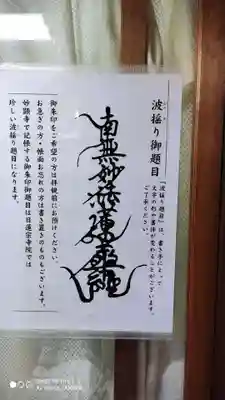 波揺り御題目
「波揺り題目」は、書き手によって
文字の形や書体が変わることがございます。
ご了承ください。
南無妙法蓮華経
御朱印をご希望の方は拝観前にお預けください。
お急ぎの方・帳面お忘れの方は書き置きのものもございます。
妙顕寺で記帳する御朱印御題目は日蓮宗寺院では
珍しい波揺り題目になります。